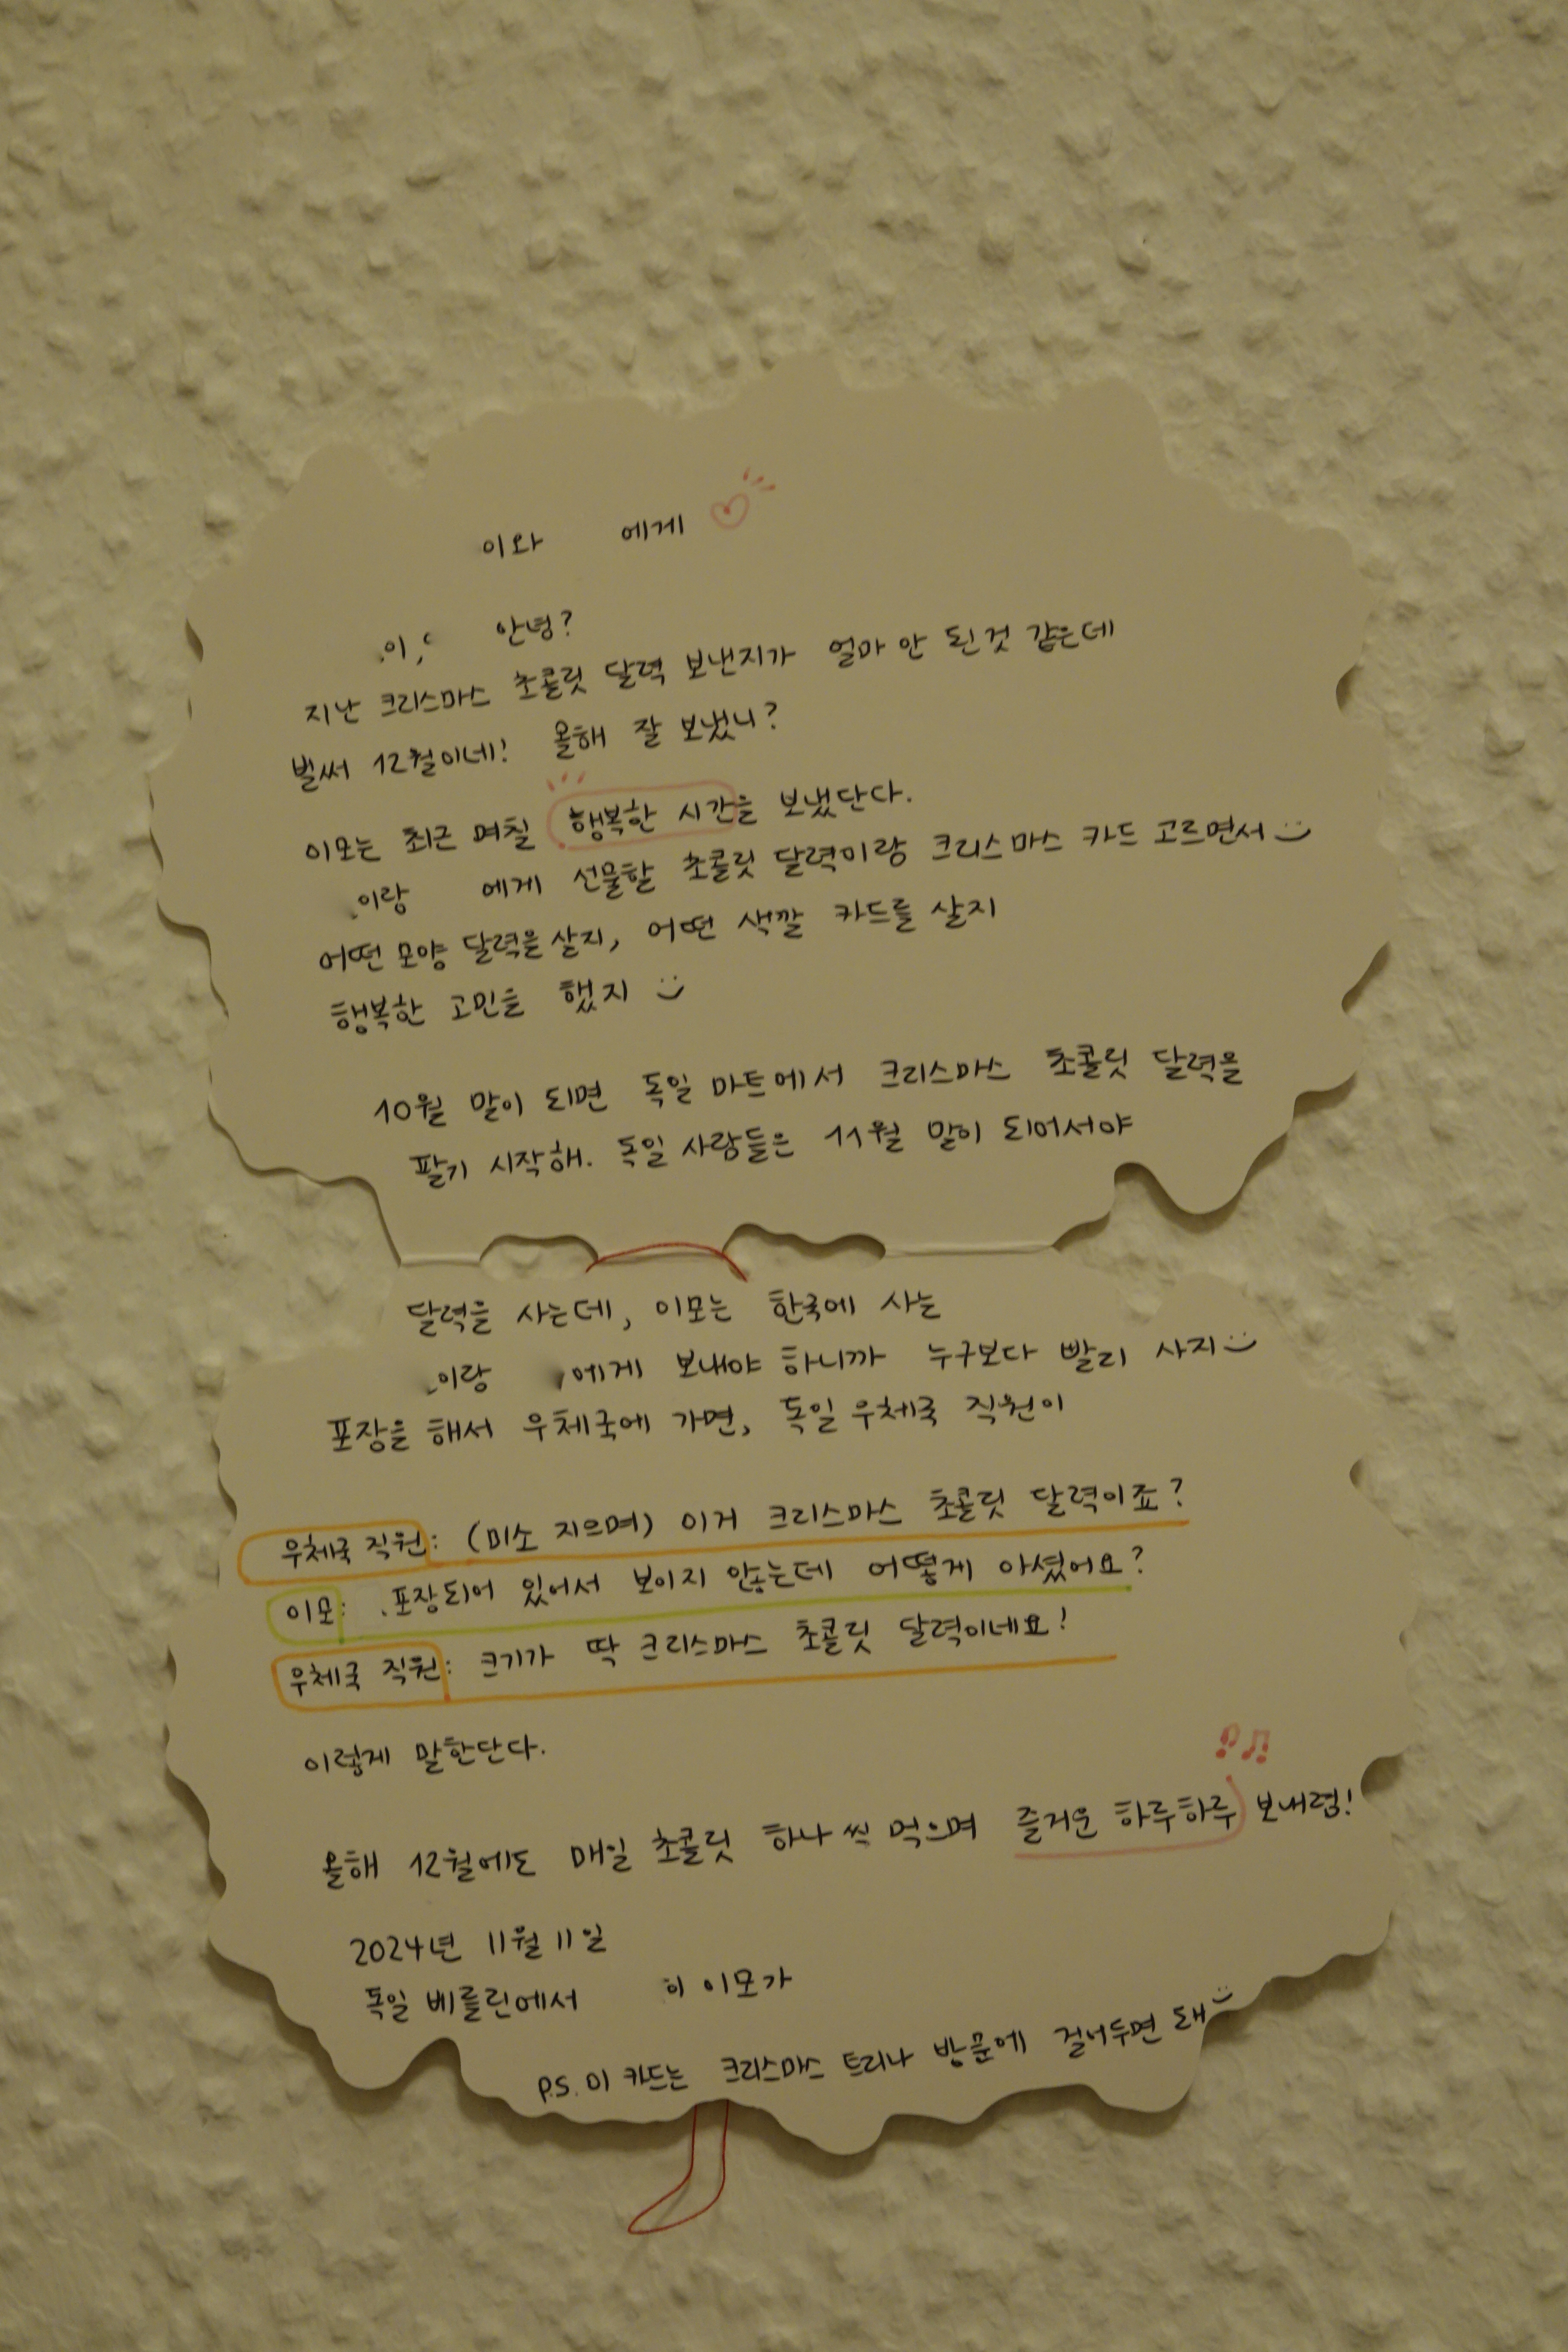 이와 에게
이, 안녕?
지난 크리스마스 초콜릿 달력 보낸지가 얼마 안 된것 같은데
벌써 12월이네! 올해 잘 보냈니?
이모는 최근 며칠 행복한 시간을 보냈단다.
이랑 에게 선물할 초콜릿 달력이랑 크리스마스 카드 고르면서
어떤 모양 달력을 살지, 어떤 색깔 카드를 살지
행복한 고민을 했지
10월 말이 되면 독일 마트에서 크리스마스 초콜릿 달력을
팔기 시작해. 독일 사람들은 11월 말이 되어서야
달력을 사는데, 이모는 한국에 사는
이랑 에게 보내야 하니까 누구보다 빨리 사지
포장을 해서 우체국에 가면, 독일 우체국 직원이
우체국 직원: (미소 지으며) 이거 크리스마스 초콜릿 달력이죠?
이모: 포장되어 있어서 보이지 않는데 어떻게 아셨어요?
우체국 직원: 크기가 딱 크리스마스 초콜릿 달력이네요!
이렇게 말한단다.
올해 12월에도 매일 초콜릿 하나씩 먹으며 즐거운 하루하루 보내렴!
2024년 11월 11일
독일 베를린에서 이모가
P.S. 이 카드는 크리스마스 트리나 방문에 걸어두면 돼